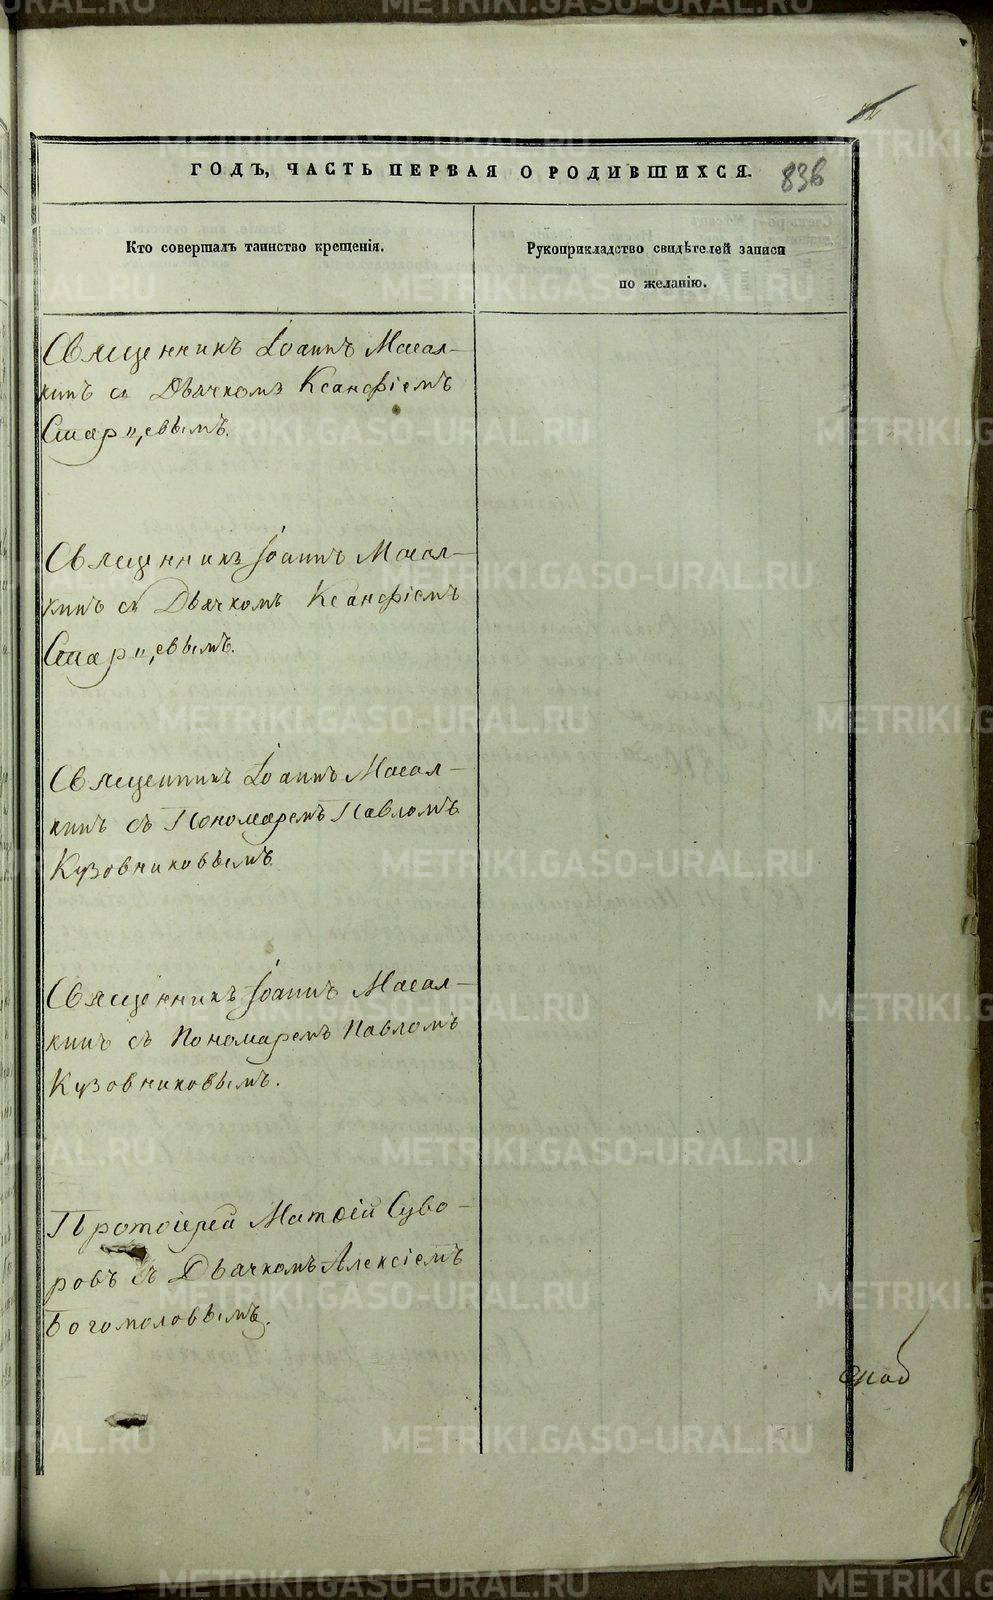 ГОДЪ, ЧАСТЬ ПЕРВАЯ О РОДИВШИХСЯ.
836
Кто совершалъ таинство крещенія.
Рукоприкладство свидѣтелей записи
по желанію.
Священникъ Іоаннъ Масал-
кинъ съ Дьячкомъ Ксанфіемъ
Старцевымъ.
Священникъ Іоаннъ Масал-
кинъ съ Дьячкомъ Ксанфіемъ
Старцевымъ.
Священникъ Іоаннъ Масал-
кинъ съ Пономаремъ Павломъ
Кузовниковымъ.
Священникъ Іоаннъ Масал-
кинъ съ Пономаремъ Павломъ
Кузовниковымъ.
Протоіерей Матѳій Суво-
ровъ съ Дьячкомъ Алексіемъ
Богомоловымъ.
METRIKI.GASO-URAL.RU